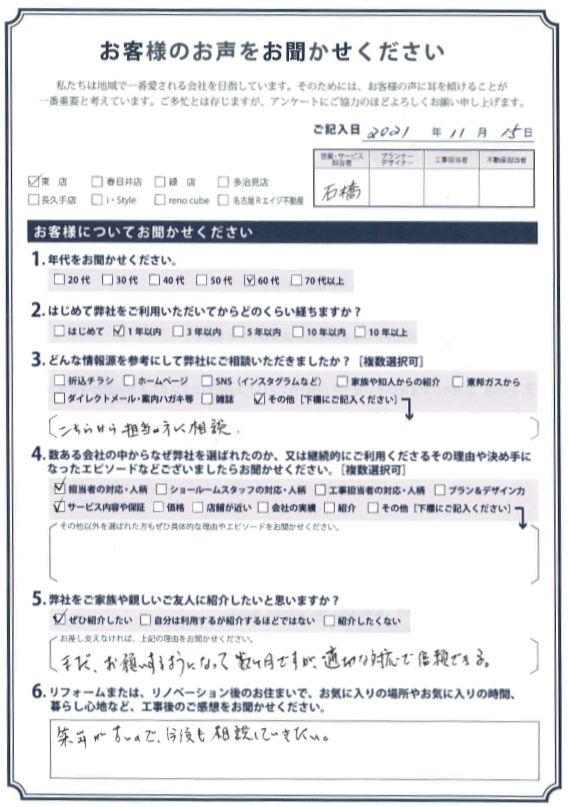 お客様のお声をお聞かせください
私たちは地域で一番愛される会社を目指しています。そのためには、お客様の声に耳を傾けることが
一番重要と考えています。ご多忙とは存じますが、アンケートにご協力のほどよろしくお願い申し上げます。
ご記入日 2021 年 11 月 15 日
営業・サービス担当者 プランナーデザイナー 工事担当者 不動産担当者
石橋
☑東 店 □春日井店 □緑 店 □多治見店
□長久手店 □i・Style □reno cube □名古屋Rエイジ不動産
お客様についてお聞かせください
1. 年代をお聞かせください。
□20代 □30代 □40代 □50代 ☑60代 □70代以上
2. はじめて弊社をご利用いただいてからどのくらい経ちますか?
□はじめて ☑1年以内 □3年以内 □5年以内 □10年以内 □10年以上
3. どんな情報源を参考にして弊社にご相談いただきましたか?[複数選択可]
□折込チラシ □ホームページ □SNS(インスタグラムなど) □家族や知人からの紹介 □東邦ガスから
□ダイレクトメール・案内ハガキ等 □雑誌 ☑その他[下欄にご記入ください]
こちらから担当の方に相談.
4. 数ある会社の中からなぜ弊社を選ばれたのか、又は継続的にご利用くださるその理由や決め手に
なったエピソードなどございましたらお聞かせください。[複数選択可]
☑担当者の対応・人柄 □ショールームスタッフの対応・人柄 □工事担当者の対応・人柄 □プラン&デザイン力
☑サービス内容や保証 □価格 □店舗が近い □会社の実績 □紹介 □その他[下欄にご記入ください]
その他以外を選ばれた方もぜひ具体的な理由やエピソードをお聞かせください。
5. 弊社をご家族や親しいご友人に紹介したいと思いますか?
☑ぜひ紹介したい □自分は利用するが紹介するほどではない □紹介したくない
お差し支えなければ、上記の理由をお聞かせください。
まだ、お願いするようになって数ヶ月ですが、適切な対応で信頼できる。
6. リフォームまたは、リノベーション後のお住まいで、お気に入りの場所やお気に入りの時間、
暮らし心地など、工事後のご感想をお聞かせください。
築年が古いので、今後も相談していきたい。